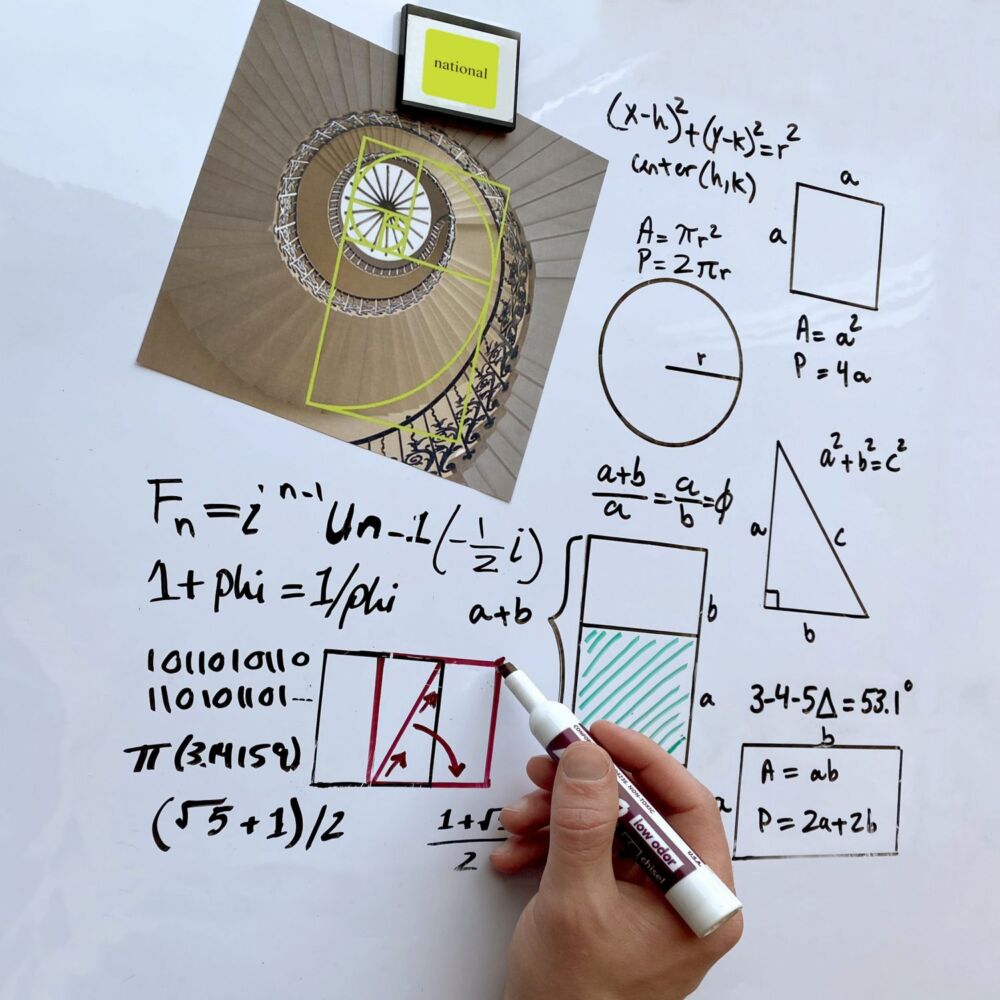 national
(x-h)²+(y-k)²=r²
center(h,k)
a
a
A=πr²
P=2πr
r
A=a²
P=4a
a²+b²=c²
a
c
b
a+b/a=a/b=ϕ
Fn=i^n-1 Un-1(-1/2 i)
1+phi=1/phi
a+b
b
a
1011010110
110101101...
π(3.14159)
(√5+1)/2
1+√5/2
3-4-5Δ=53.1°
b
a
A=ab
P=2a+2b
low odor
chisel
NON-TOXIC
U.S.A.